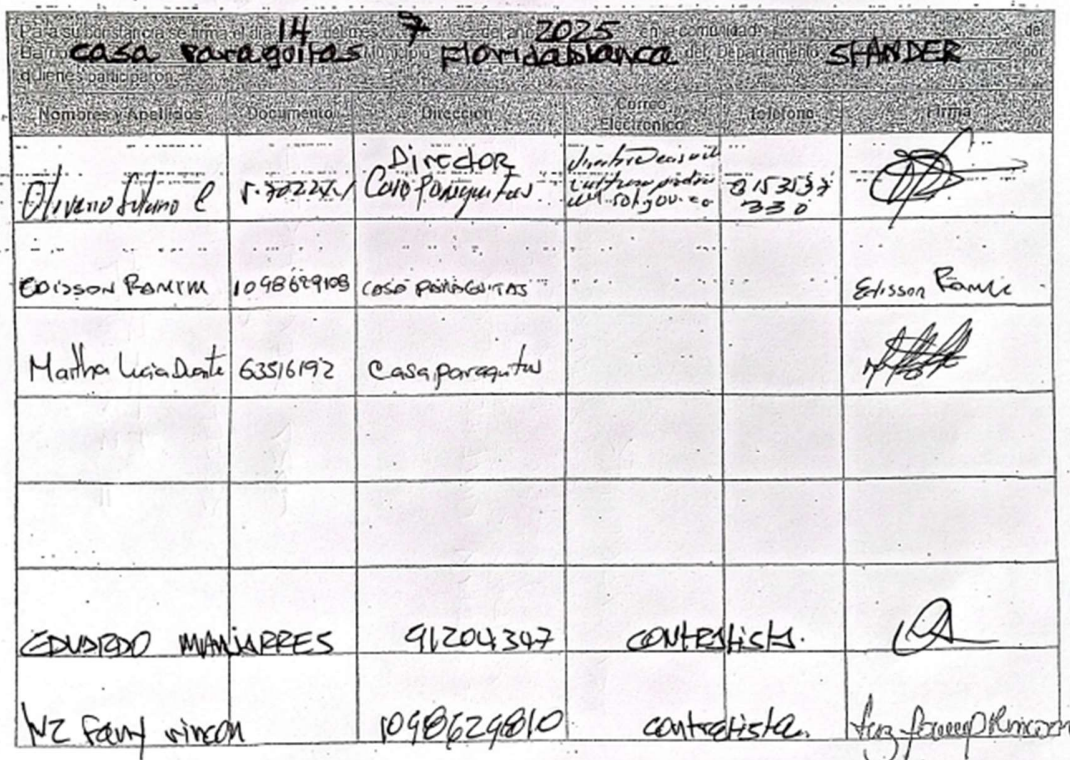 Para su constancia se firma el día 14 del mes 7 del año 2025 en la comunidad del
Barrio casa Paraguitas Municipio Floridablanca del Departamento STANDER por
quienes participaron:
Nombres y Apellidos Documento Dirección Correo Electronico telefono Firma
Director
Casa Paraguitas
3153537
330
EDISSON RAMIREZ 1098629108 CASA PARAGUITAS Edisson
Martha Lucia Duarte 63516192 Casa paraguitas
EDUARDO MANJARRES 91204347 contratista.
LUZ Fanny rincon 1098629810 contratista.